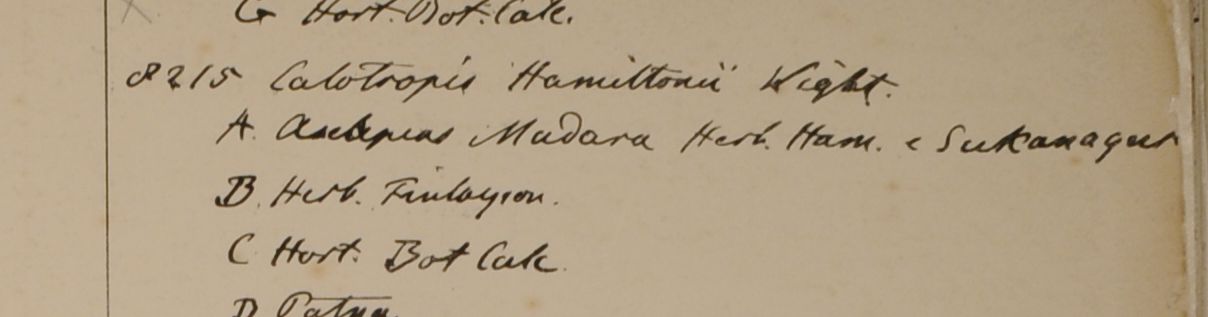 G Hort. Bot. Calc.
8215 Calotropis Hamiltonii Wight.
A. Asclepias Madara Herb. Ham. e Sukanagur
B. Herb. Finlayson.
C Hort. Bot Calc
D Patna.